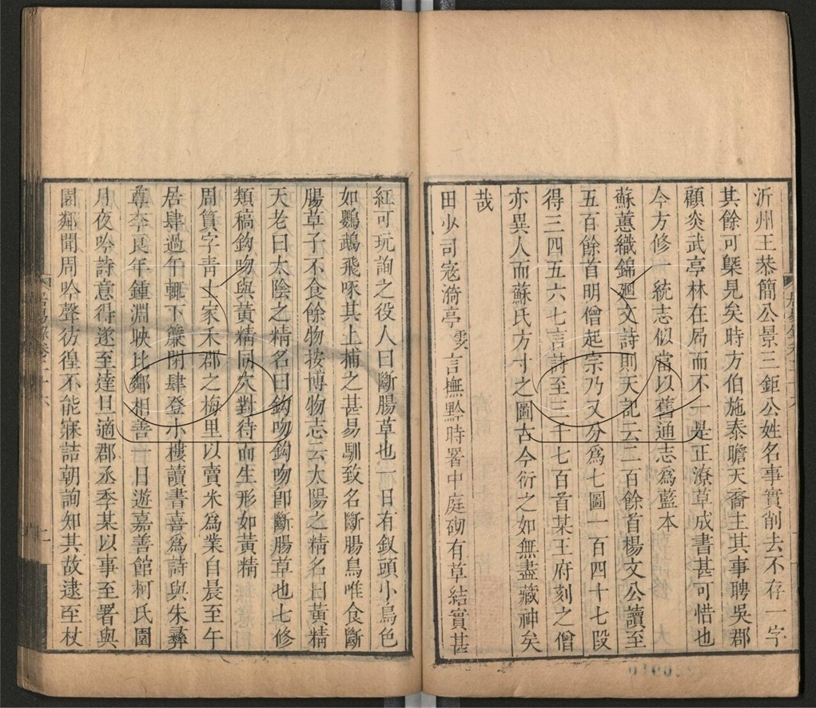 沂州王恭簡公景三鉅公姓名事實削去不存一字
其餘可槩見矣時方伯施泰瞻天裔主其事聘吳郡
顧炎武亭林在局而不一是正潦草成書甚可惜也
今方修一統志似當以舊通志爲藍本
蘇蕙織錦廻文詩則天記云二百餘首楊文公讀至
五百餘首明僧起宗乃又分爲七圖一百四十七段
得三四五六七言詩至三千七百首某王府刻之僧
亦異人而蘇氏方寸之圖古今衍之如無盡藏神矣
哉
田少司寇漪亭雯言撫黔時署中庭砌有草結實甚
紅可玩詢之役人曰斷腸草也一日有釵頭小鳥色
如鸚鵡飛啄其上捕之甚易馴致名斷腸鳥唯食斷
腸草子不食餘物按博物志云太陽之精名曰黃精
天老曰太陰之精名曰鈎吻鈎吻卽斷腸草也七修
類稿鈎吻與黃精同穴對待而生形如黃精
周篔字靑士家禾郡之梅里以賣米爲業自晨至午
居肆過午輒下簾閉肆登小樓讀書喜爲詩與朱彝
尊李良年鍾淵映比鄰相善一日遊嘉善館柯氏園
月夜吟詩意得遂至達旦適郡丞季某以事至署與
園鄰聞周吟聲彷徨不能寐詰朝詢知其故逮至杖
居易錄卷二十六